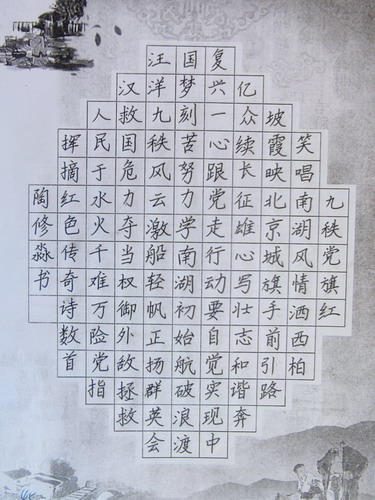 九秩党旗红
笑唱南湖风情洒西柏
坡霞映北京城旗手前引路
亿众续长征雄心写壮志和谐奔
复兴一心跟党走行动要自觉实现中
国梦刻苦努力学南湖初始航破浪渡
汪洋九秩风云激船轻帆正扬群英会
汉救国危力夺当权御外敌拯救
人民于水火千难万险党指
挥摘红色传奇诗数首
陶修淼书